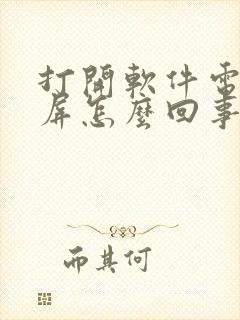 打開軟件電
屏怎麼回事
而其何